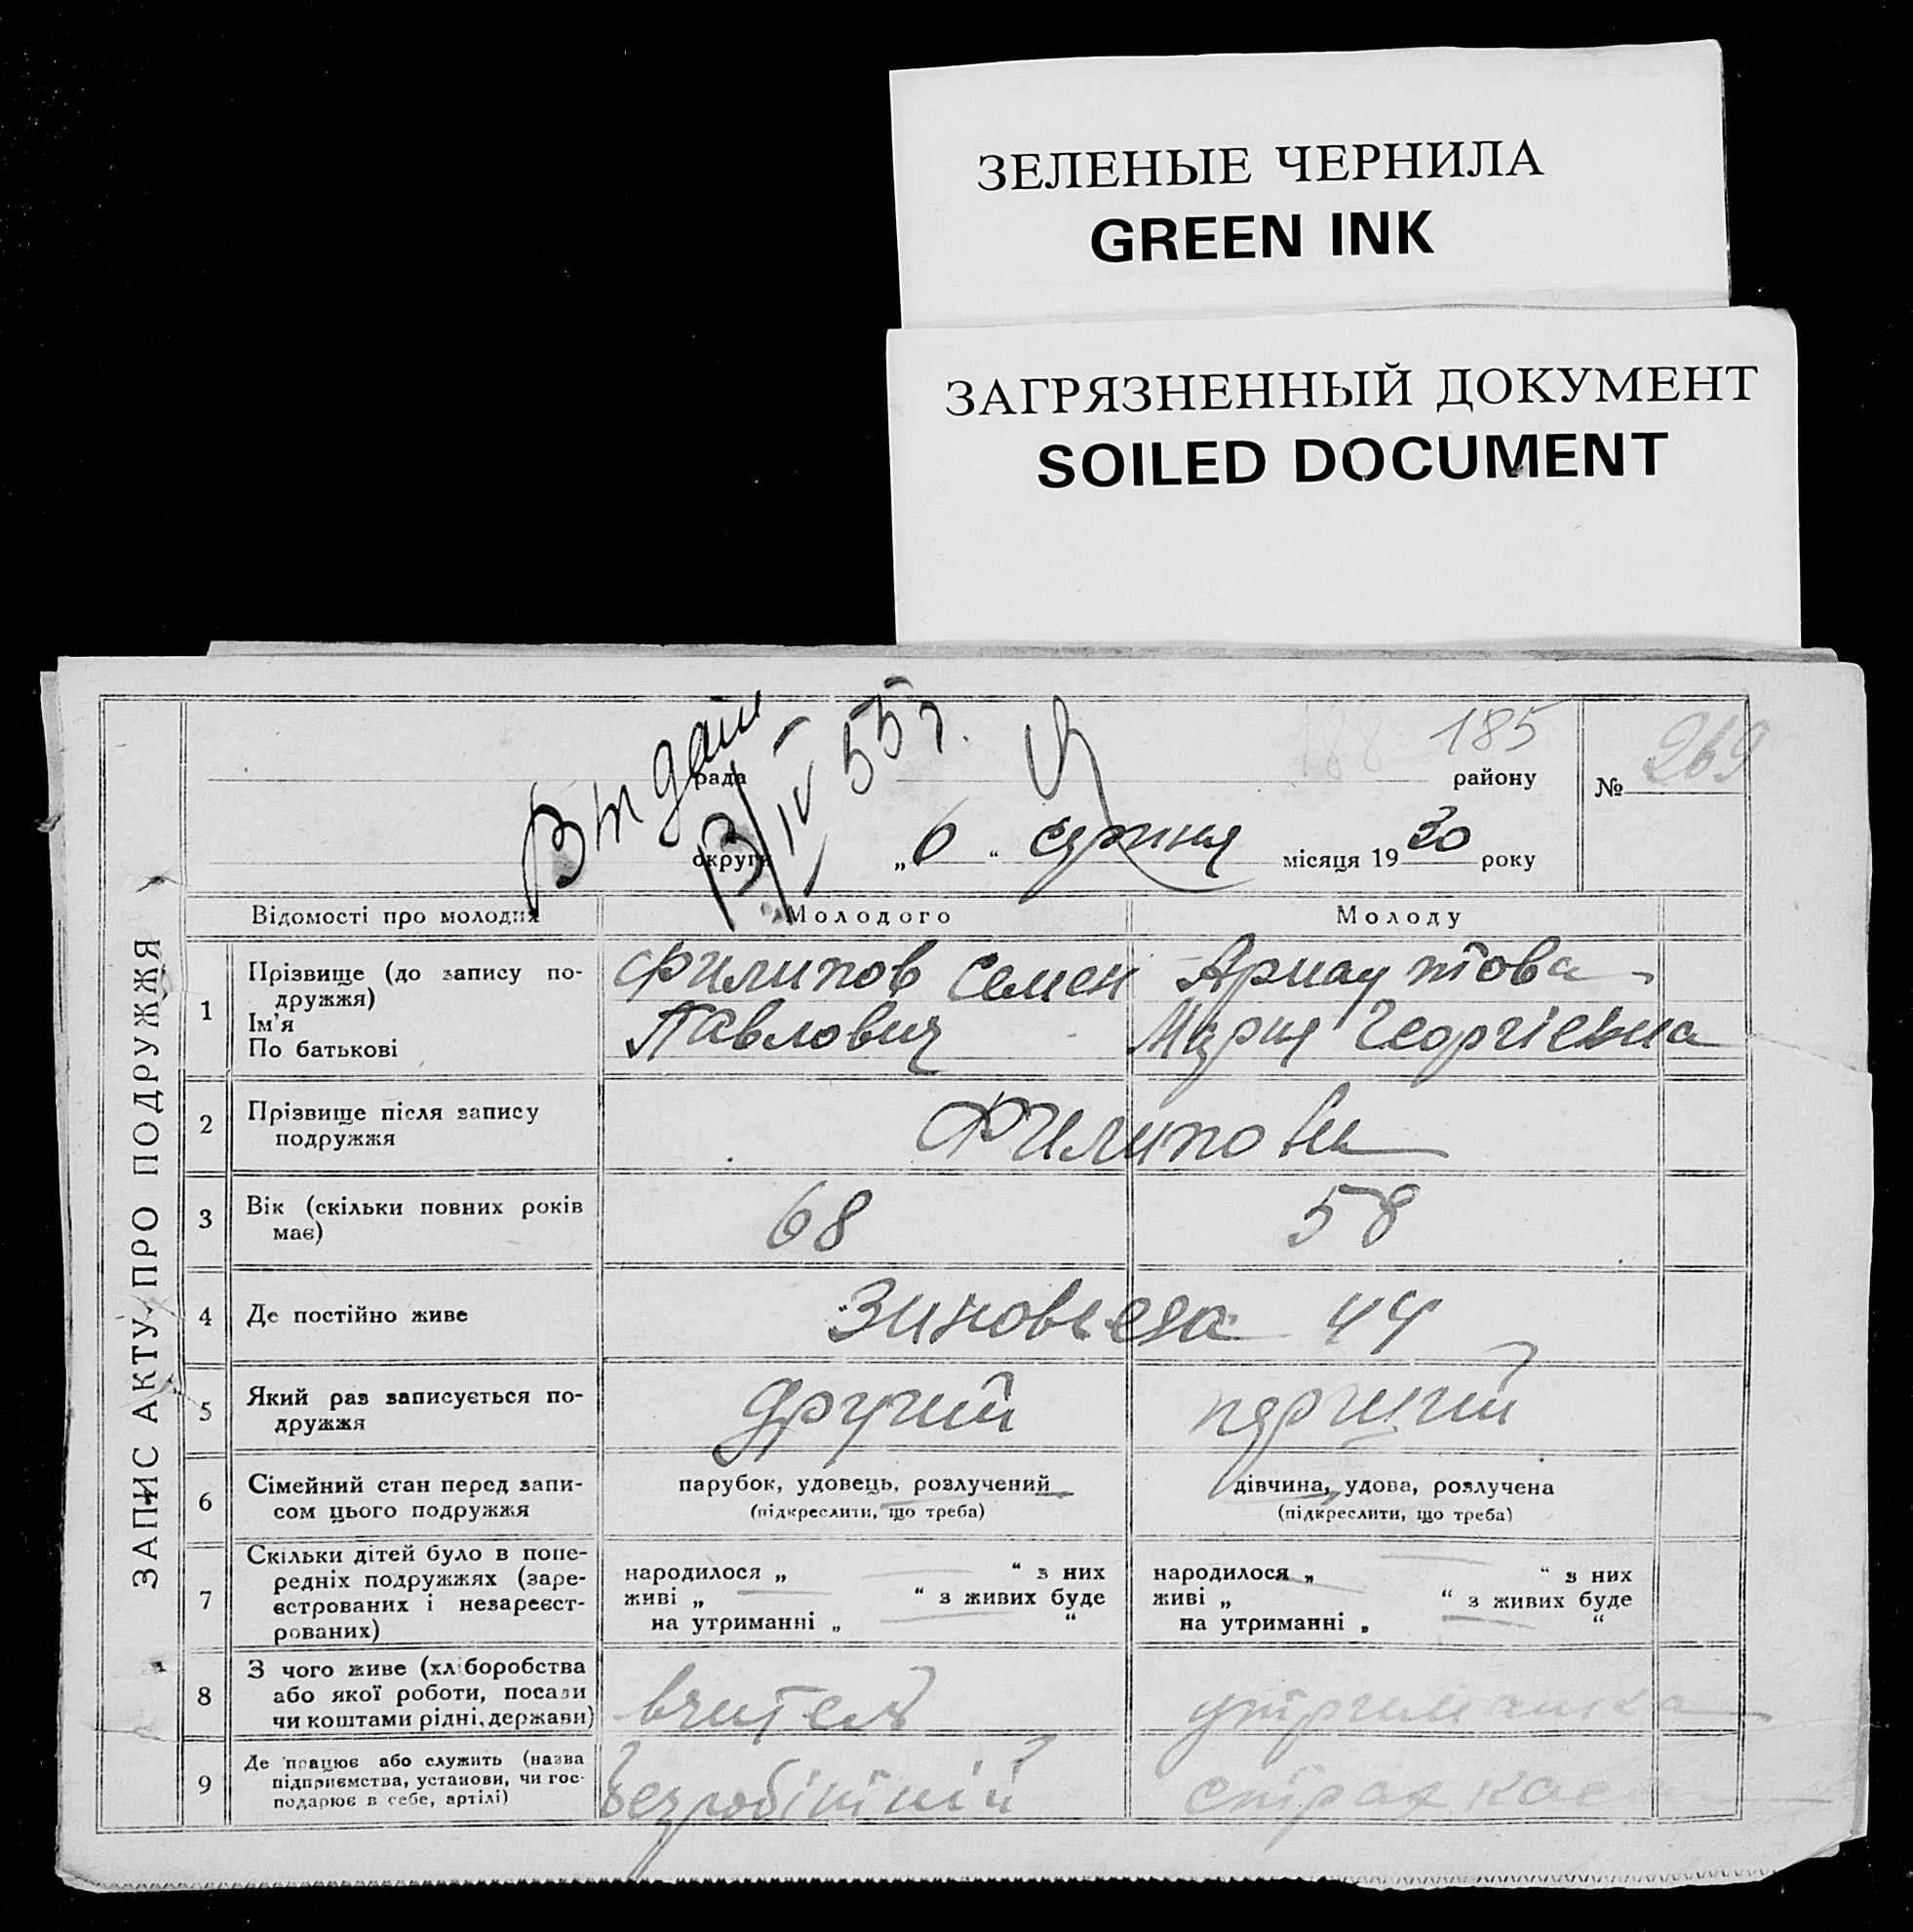 ЗЕЛЕНЫЕ ЧЕРНИЛА
GREEN INK
ЗАГРЯЗНЕННЫЙ ДОКУМЕНТ
SOILED DOCUMENT
ЗАПИС АКТУ ПРО ПОДРУЖЖЯ
13/IV 55г.
188 185
рада району
№ 269
округи „6“ серпня місяця 1930 року
Відомості про молодих Молодого Молоду
1 Прізвище (до запису по-
дружжя)
Ім'я
По батькові
Филипов Семен
Павлович
Арнаутова
Мария Георгіевна
2 Прізвище після запису
подружжя
Филипови
3 Вік (скільки повних років
має)
68 58
4 Де постійно живе Зиновьева 44
5 Який раз записується по-
дружжя
другий перший
6 Сімейний стан перед запи-
сом цього подружжя
парубок, удовець, розлучений
(підкреслити, що треба)
дівчина, удова, розлучена
(підкреслити, що треба)
7 Скільки дітей було в попе-
редніх подружжях (заре-
єстрованих і незареєст-
рованих)
народилося „ — “ з них
живі „ — “ з живих буде
на утриманні „ — “
народилося „ — “ з них
живі „ — “ з живих буде
на утриманні „ — “
8 З чого живе (хліборобства
або якої роботи, посади
чи коштами рідні, держави)
вчитель утриманка
9 Де працює або служить (назва
підприємства, установи, чи гос-
подарює в себе, артілі)
безробітній страх каси